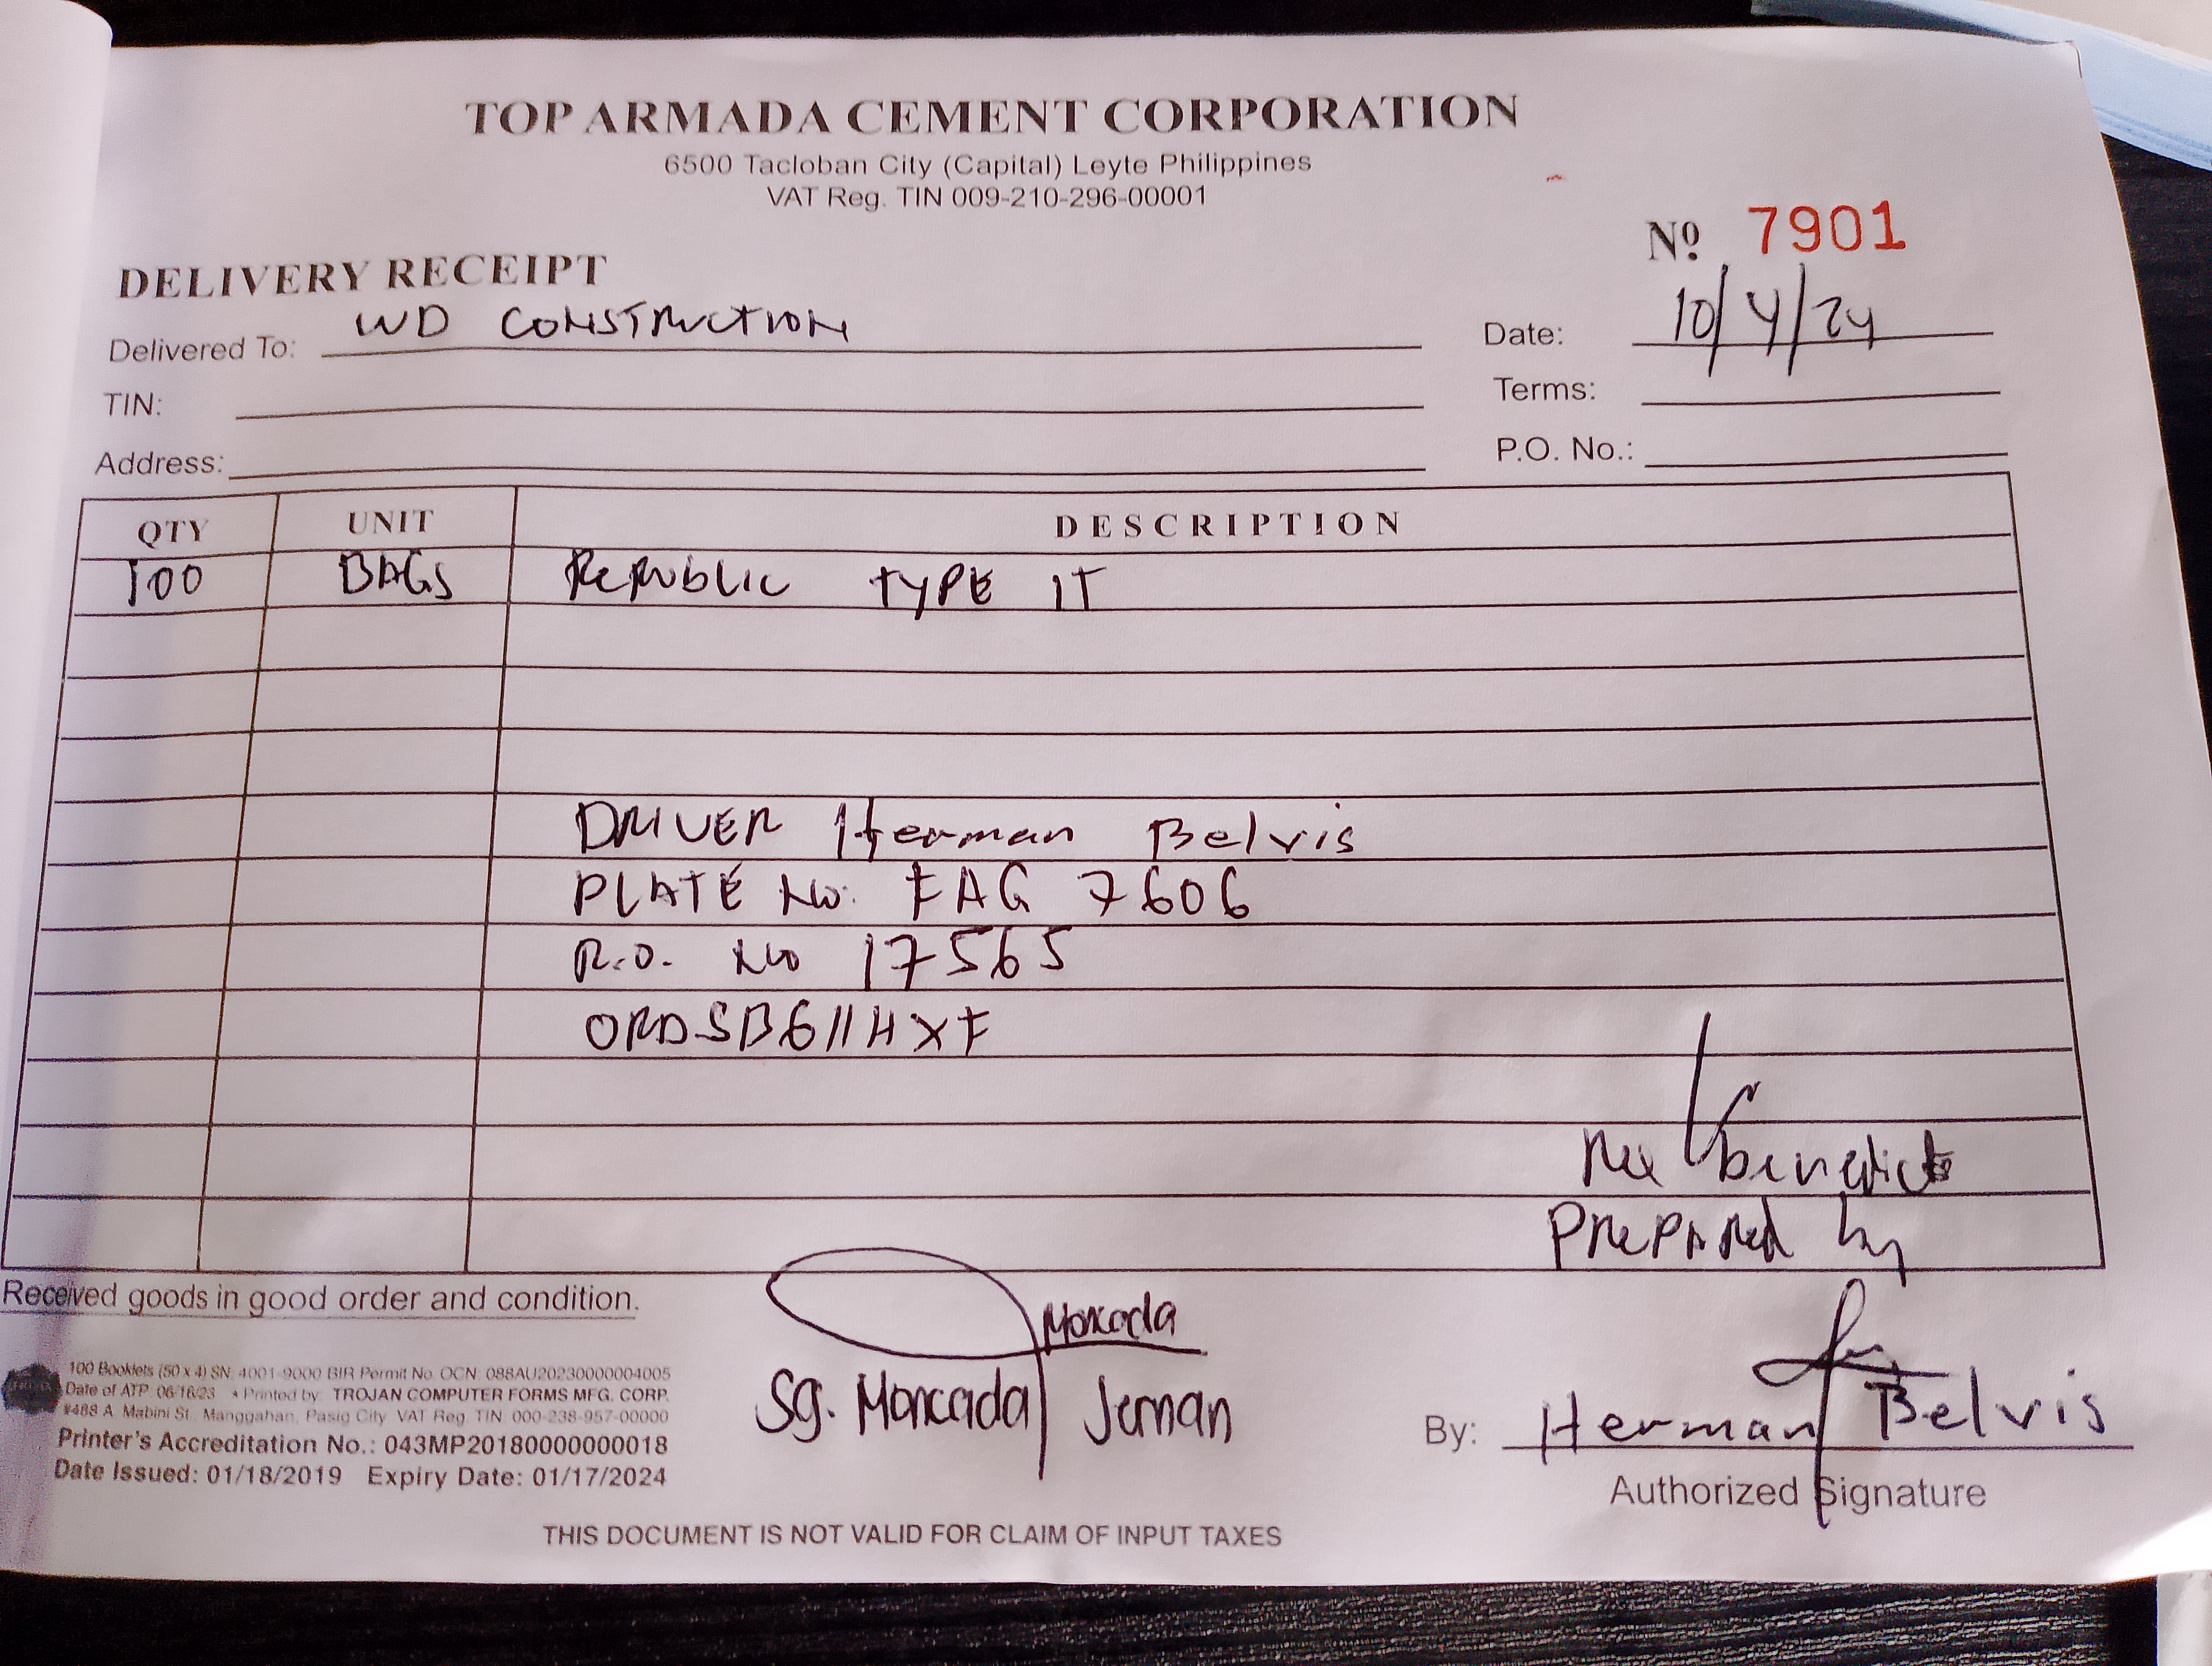 TOP ARMADA CEMENT CORPORATION
6500 Tacloban City (Capital) Leyte Philippines
VAT Reg. TIN 009-210-296-00001
Nº 7901
DELIVERY RECEIPT
Delivered To: WD CONSTRUCTION
Date: 10/4/24
TIN:
Terms:
Address:
P.O. No.:
QTY UNIT DESCRIPTION
100 BAGS REPUBLIC TYPE 1T
DRIVER Herman Belvis
PLATE No: FAG 7606
R.O. No 17565
ORDSB611HXF
Rex benedict
Prepared by
Received goods in good order and condition.
Moncada
Sg. Moncada Jernan
100 Booklets (50 x 4) SN: 4001-9000 BIR Permit No. OCN: 088AU20230000004005
Date of ATP: 06/16/23 • Printed by: TROJAN COMPUTER FORMS MFG. CORP.
#488 A. Mabini St. Manggahan, Pasig City VAT Reg. TIN: 000-238-957-00000
Printer's Accreditation No.: 043MP20180000000018
Date Issued: 01/18/2019 Expiry Date: 01/17/2024
By: Herman Belvis
Authorized Signature
THIS DOCUMENT IS NOT VALID FOR CLAIM OF INPUT TAXES